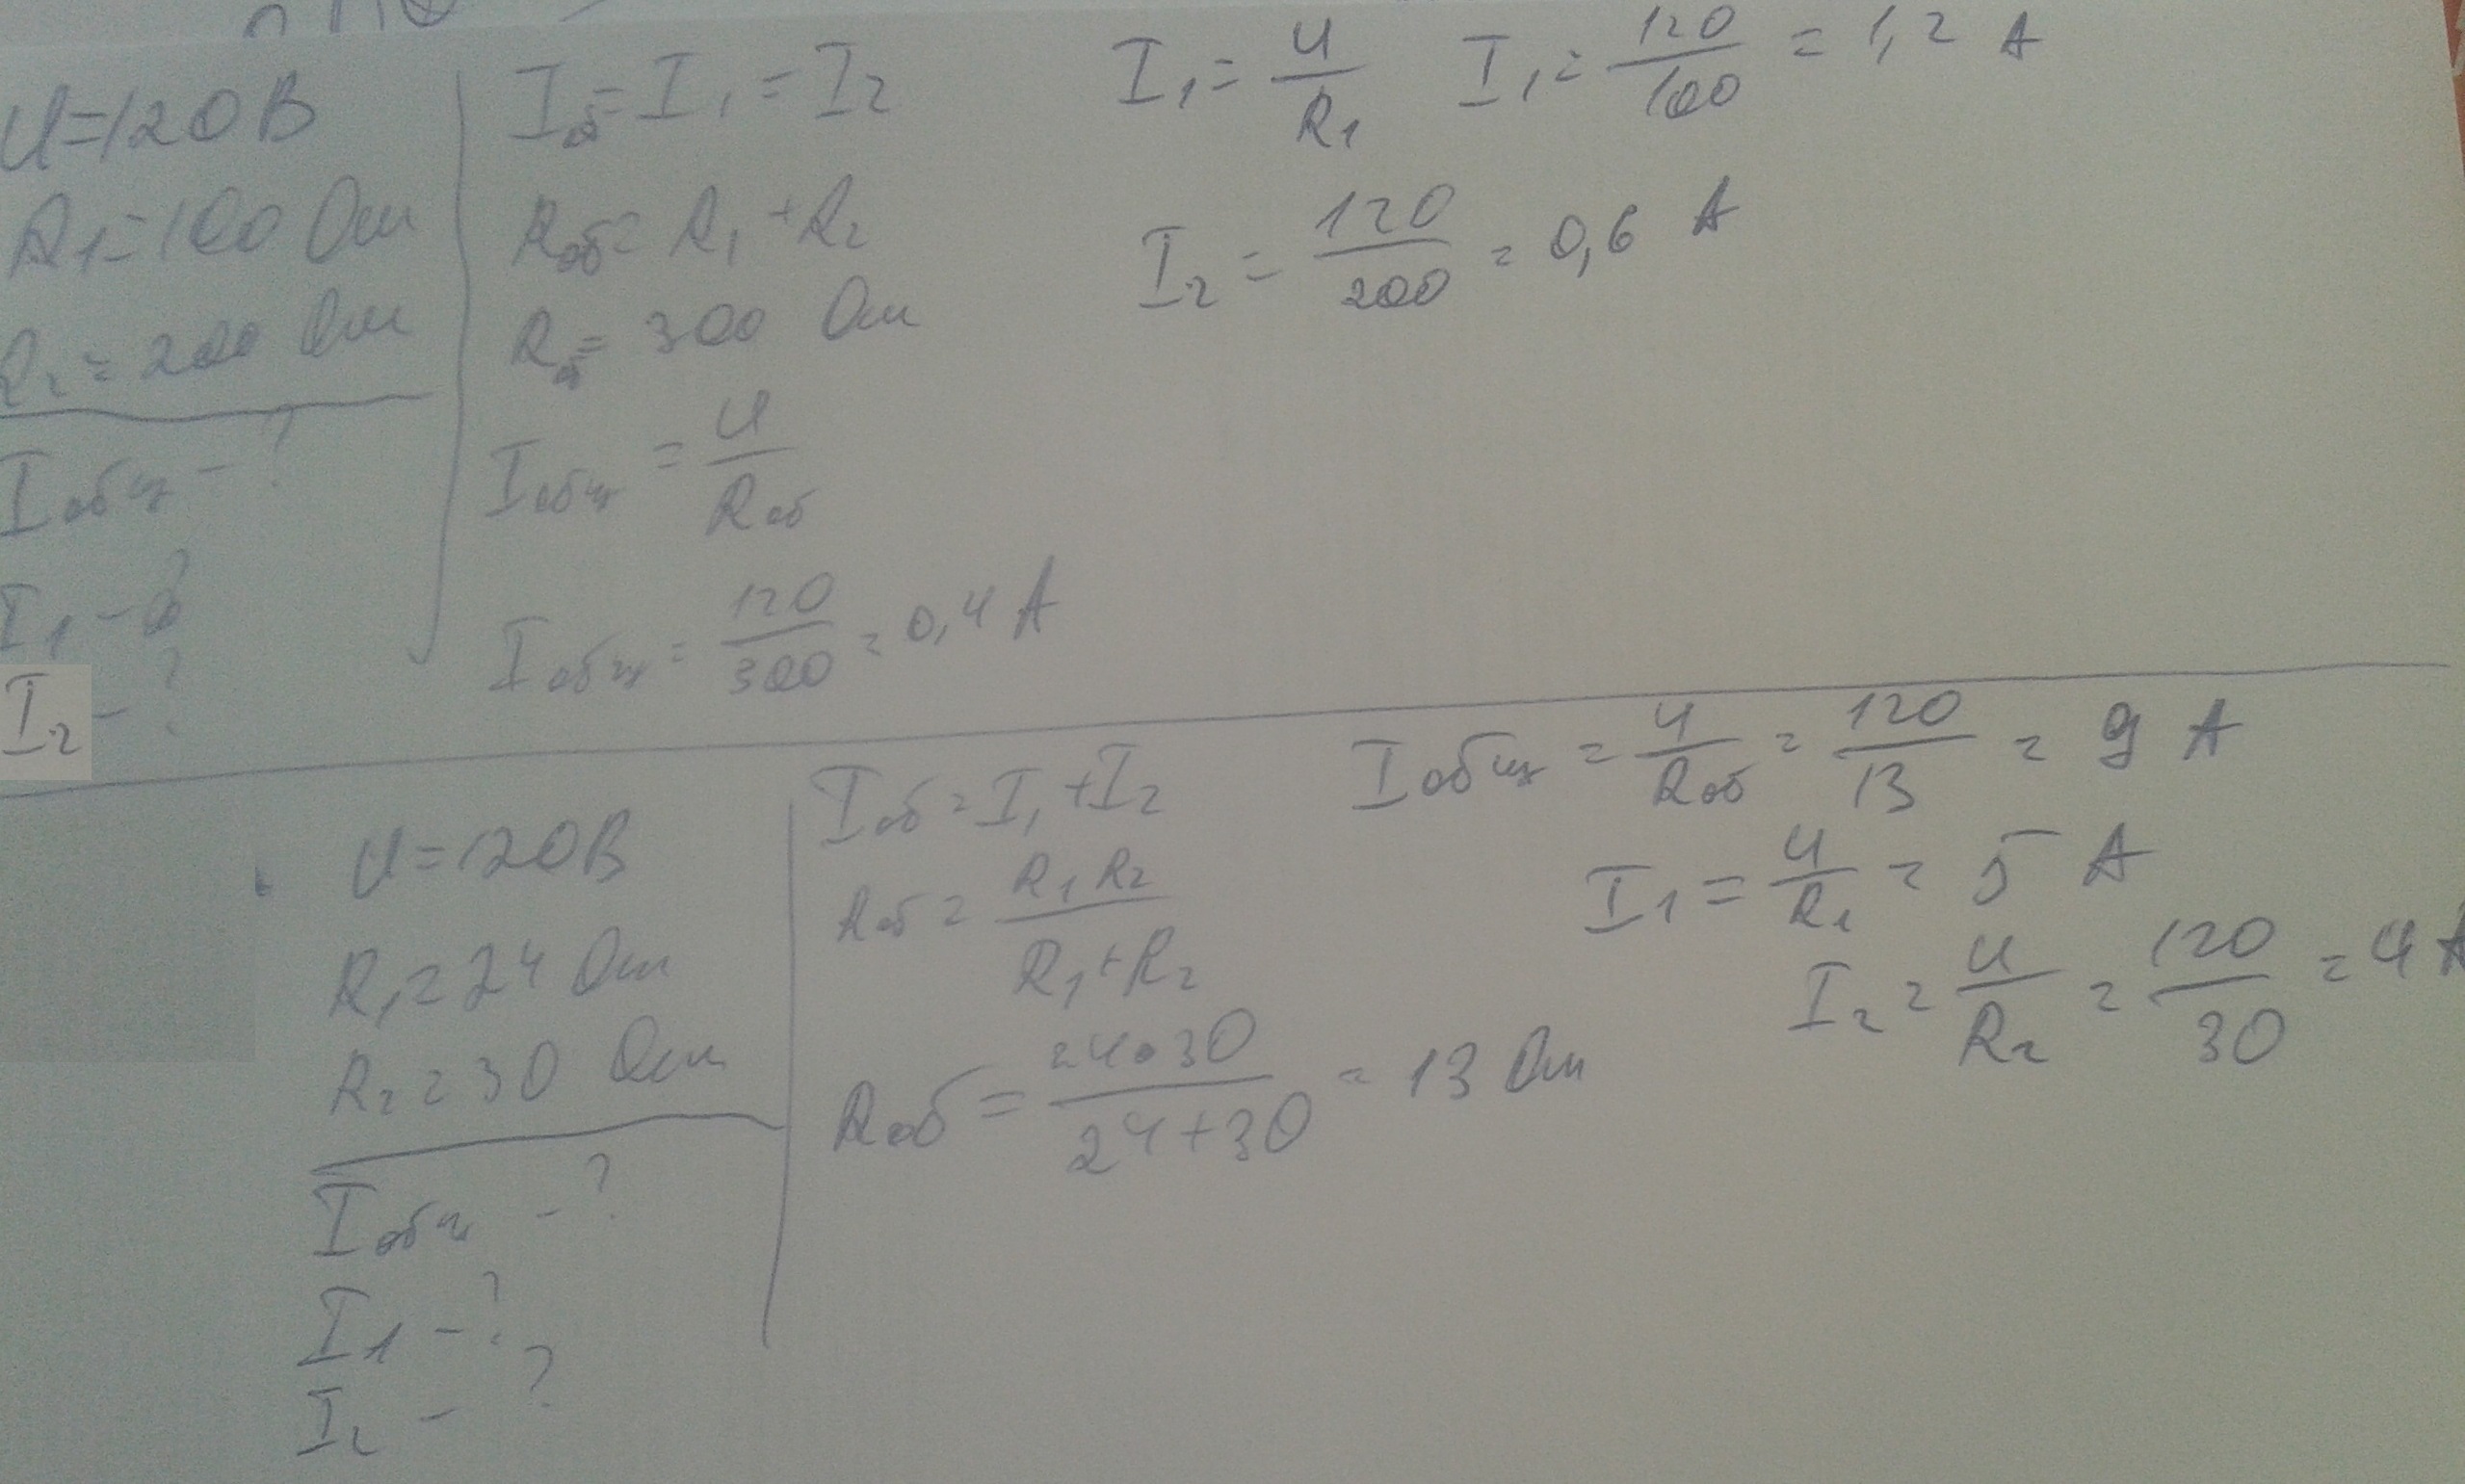 U=120В
R1=100 Ом
R2=200 Ом
Iобщ - ?
I1 - ?
I2 - ?
Iоб=I1=I2
Rоб=R1+R2
Rоб=300 Ом
Iобщ = U/Rоб
Iобщ = 120/300 = 0,4 А
I1 = U/R1 I1 = 120/100 = 1,2 А
I2 = 120/200 = 0,6 А
U=120В
R1=24 Ом
R2=30 Ом
Iобщ - ?
I1 - ?
I2 - ?
Iоб=I1+I2
Rоб = R1R2/R1+R2
Rоб = 24•30/24+30 = 13 Ом
Iобщ = U/Rоб = 120/13 = 9 А
I1 = U/R1 = 5 А
I2 = U/R2 = 120/30 = 4 А